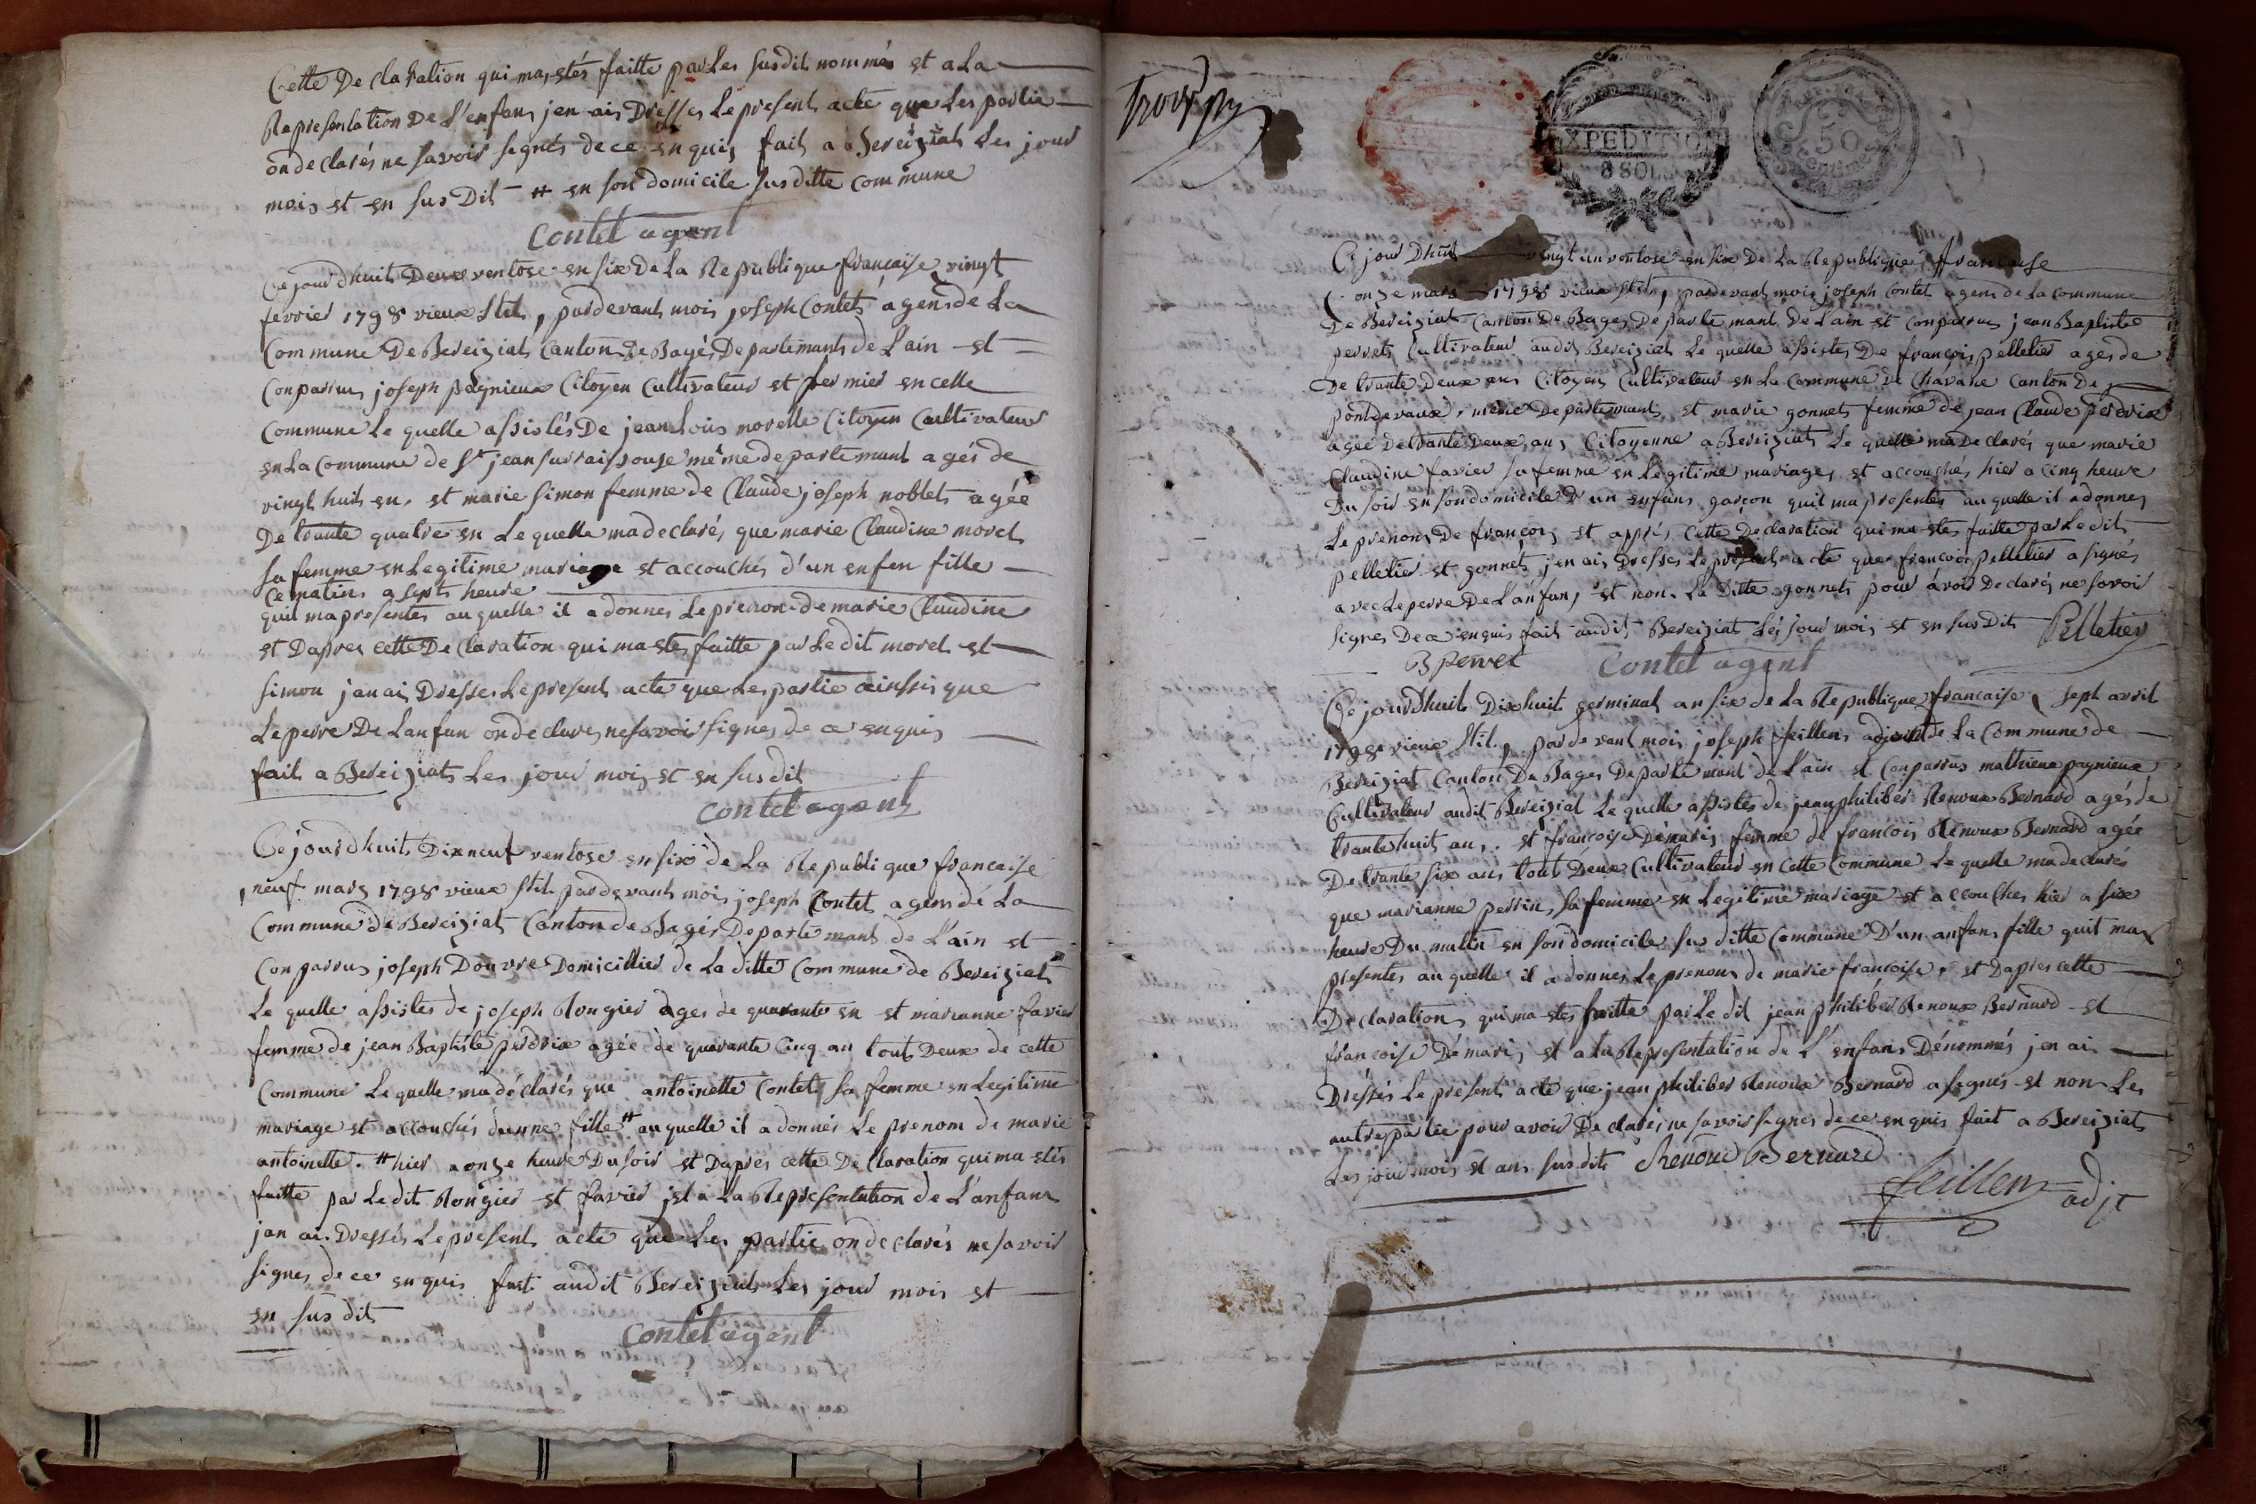 Cette Declaration qui ma estés faitte par Les susdit nommés et a La
Representation De L'enfans jen ais Dresses Le present acte que Les partie
on declarés ne savoir signés de ce enquis fait a Bereiziat Les jour
mois et en sus Dit # en son domicile susditte commune
Contet agent
Ce jourdhuit Deux ventose en six De La Republique francaise vingt
fevrier 1798 vieux stil, pardevant mois joseph Contet agens de La
Commune De Bereiziat Canton De Bagés Departemants de L'ain et
Conparrus joseph pagnieux Citoyen Cultivateur et fermier en celle
Commune Le quelle assistés De jean Louis morelle Citoyen Cultivateur
en La Commune de St jean sur raissouze même departemant agés de
vingt huit en, et marie simon femme de Claude joseph noblet agée
De trante quatre en Le quelle ma declarés que marie Claudine morel
sa femme en Legitime mariage et accouchés d'un enfen fille
Ce matins a septs heure
quil ma presentés auquelle il a donnes Le prenon de marie Claudine
et Dapres cette De Claration qui ma estes faitte par Le dit morel et
simon jan ais Dresses Le present acte que Les partie ainssi que
Le perre De Lanfan on declares ne savoir signes de ce enquis
fait a Bereiziats Les jour mois et en sus dit
contet agent
Ce jourdhuit Dix neuf ventose en six de La Republique francaise
neuf mars 1798 vieux stil pardevant mois joseph Contet agens de La
Commune de Bereiziat Canton de Bagés Departemant de L'ain et
Conparrus joseph Douvre Domicillier de La ditte Commune de Bereiziat
Le quelle assistes de joseph Rongier ages de quarante en et marianne favier
femme de jean Baptiste perdrix agée de quarante Cinq an tout Deux de cette
Commune Le quelle ma declarés que antoinette Contet sa femme en Legitime
mariage et accouchés dunne fille # auquelle il a donnés Le prenom de marie
antoinette. # hier a onze heure Du soir et Daprés cette De Claration qui ma estés
faitte par Le dit Rongier et favier et a La Representation de L'anfans
jan ais Dressés Le présent acte que Les partie on declarés ne savoir
signes de ce enquis fait audit Bereiziat Les jour mois et
en sus dit
Contet agent
EXPEDITION
8 SOLS
50
Centimes
Ce jour Dhuit vingt un ventose en six De La Republique francaise
onze mars 1798 vieux stil, pardevant mois joseph Contet agens de La commune
De Bereiziat Canton De Bages De parte mant De L'ain et Conparrus jean Baptiste
perret Cultivateur audit Bereiziat Le quelle assistes De françois pelletier ages de
De trante Deux ans Citoyen Cultivateur en La Commune de Chavane Canton De
pontdevaux, même Departemant et marie gonnet femme de jean Claude perdrix
agée De trante Deux ans Citoyenne a Bereiziat Le quelle ma De clarés que marie
Claudine favier sa femme en Legitime mariage, et accouchés hier a Cinq heure
Du soir en son domicile D'un enfans garçon quil ma presentés au quelle il a donnes
Le prenom De françois et aprés Cette De claration qui ma estes faitte par Le dit
pelletier et gonnet jen ais Dresses Le present acte que francois pelletier a signés
avec Le perre De L'anfans, et non La Ditte gonnet pour avoir De clarés ne savoir
signes De ce enquis fait audit Bereiziat Les jour mois et en sus Dits Pelletier
B perret Contet agent
Ce jourdhuit Dix huit germinal an six de La Republique francaise, sept avril
1798 vieux stil, pardevant mois joseph feillens adjoint de La Commune de
Bereiziat Canton De Bages Departemant de L'ain et Conparrus mathieux pagnieux
Cultivateur audit Bereiziat Le quelle assistés de jean philiber Renoux Bernard agés de
trante huit an, et francoise Démaris femme de francois Renoux Bernard agée
De trante six ans tout Deux Cultivateur en cette Commune Le quelle ma declarés
que marianne perrin, sa femme en Legitime mariage et accouchés hier a six
heure Du matin en son domicile sus ditte Commune D'un anfans fille quil ma
presentés auquelle il a donnes Le prenom de marie francoise, et Dapres cette
De claration, qui ma estes faitte par Le dit jean philiber Renoux Bernard et
francoise Démaris et a La Representation de L'enfans Dénommés jen ais
Dressés Le présent acte que jean philiber Renoux Bernard a signés et non Les
autres partie pour avoir De clarés ne savoir signes de ce enquis fait a Bereiziat
Les jour mois et ans susdits Renoud Bernard
feillens adjt